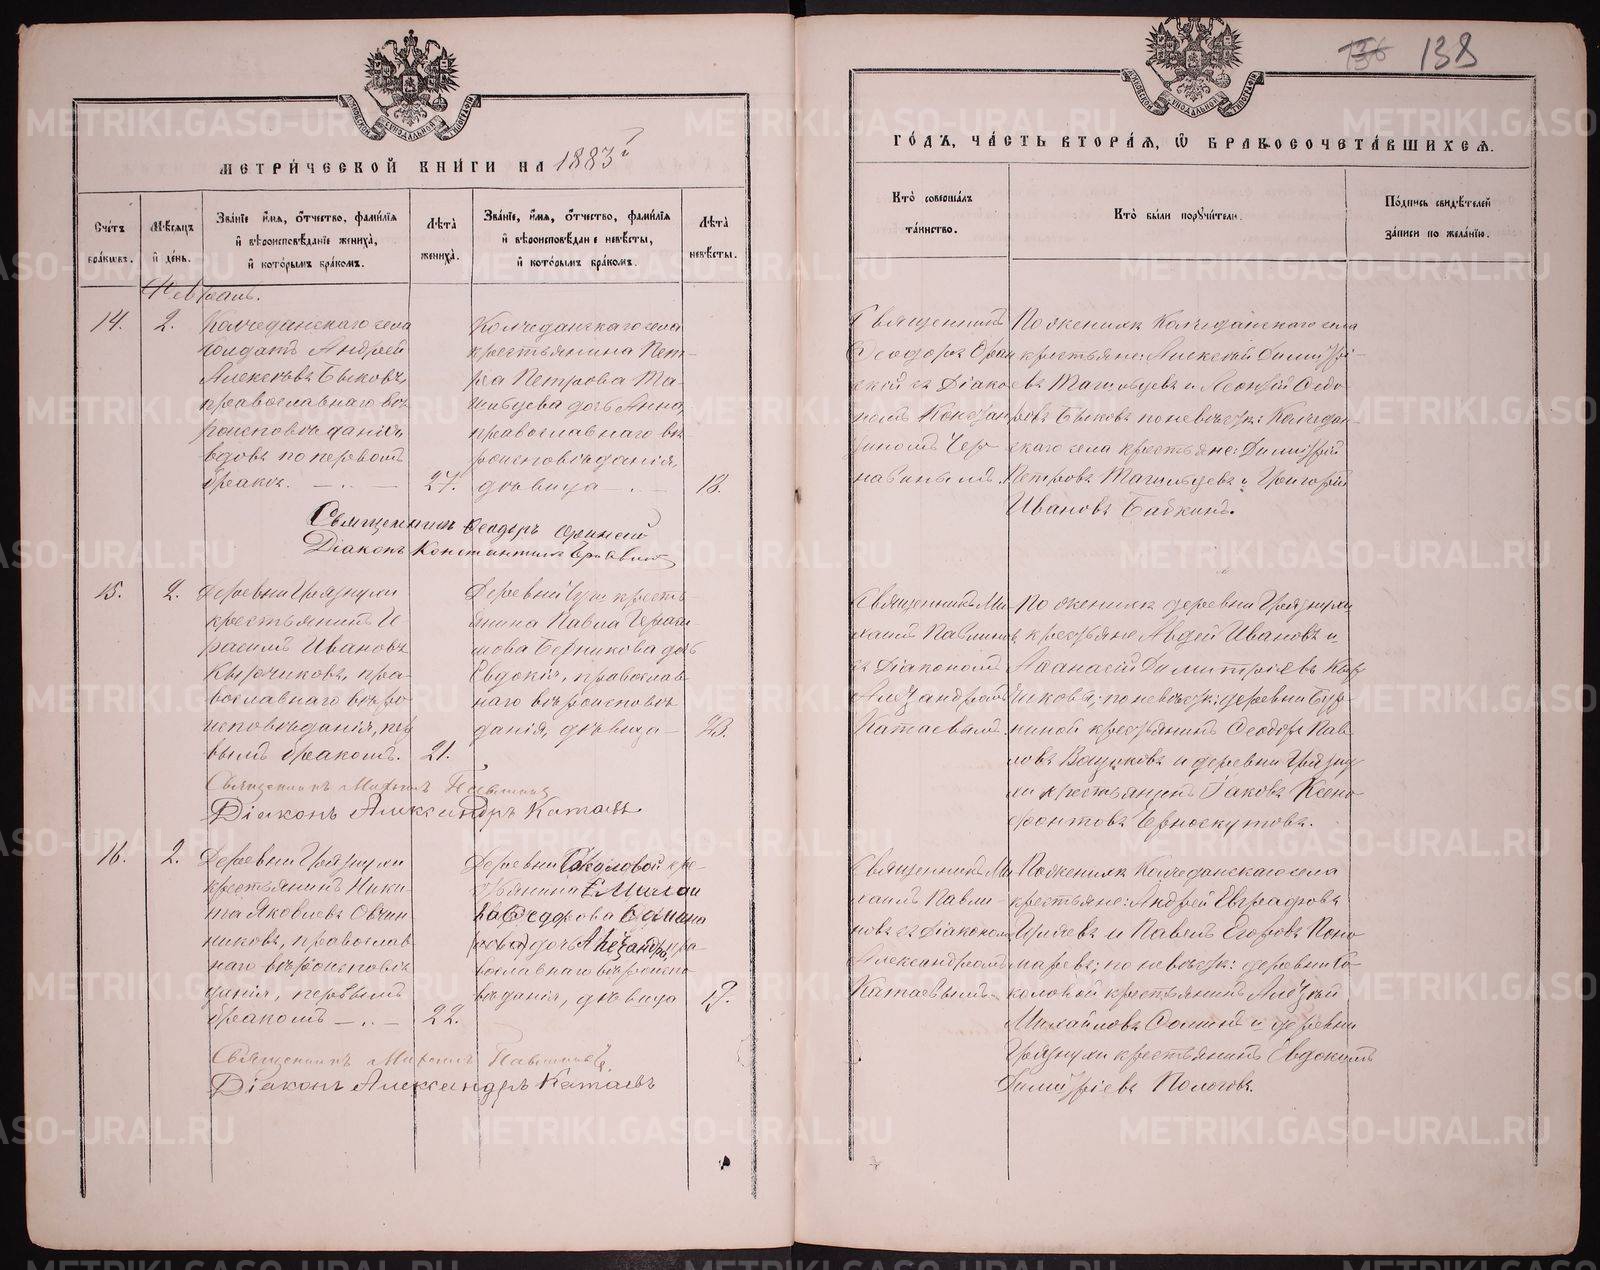 МЕТРИ́ЧЕСКОЙ КНИ́ГИ НА 1883й
Сче́тъ бра́кѡвъ.
Мѣ́сяцъ и́ де́нь.
Зва́нїе, и́мя, ѻ́тчество, фами́лїя и́ вѣроисповѣ́данїе жениха̀, и́ кото́рымъ бра́комъ.
Лѣ́та жениха̀.
Зва́нїе, и́мя, ѻ́тчество, фами́лїя и́ вѣроисповѣ́данїе невѣ́сты, и́ кото́рымъ бра́комъ.
Лѣ́та невѣ́сты.
Февраль.
14.
2.
Колчеданскаго села
солдатъ Андрей
Алексѣевъ Быковъ,
православнаго вѣ-
роисповѣданія,
вдовъ по первомъ
бракѣ.
27.
Колчеданскаго села
крестьянина Пет-
ра Петрова Та-
гильцева дочь Анна,
православнаго вѣ-
роисповѣданія,
дѣвица
18.
Священникъ Ѳеодоръ
Діаконъ Константинъ
15.
2.
Деревни Грязнухи
крестьянинъ Ге-
расимъ Ивановъ
Кырчиковъ, пра-
вославнаго вѣро
исповѣданія, пер
вымъ бракомъ.
21.
Деревни крестъ-
янина Павла Гераси
мова Берникова дочь
Евдокія, православ-
наго вѣроисповѣ
данія, дѣвица
23.
Священникъ Михаилъ Павлиновъ
Діаконъ Александръ Катаевъ
16.
2.
Деревни Грязнухи
крестьянинъ Ники-
та Яковлевъ Овчин
никовъ, православ
наго вѣроисповѣ
данія, первымъ
бракомъ
22.
Деревни Соколовой кре-
стьянина
Ѳедорова
дочь пра-
вославнаго вѣроиспо
вѣданія, дѣвица
19.
Священникъ Михаилъ Павлиновъ
Діаконъ Александръ Катаевъ
136 138
ГО́ДЪ, ЧА́СТЬ ВТОРА́Я, Ѡ БРАКОСОЧЕТА́ВШИХСЯ.
Кто̀ соверша́лъ та́инство.
Кто̀ бы́ли порꙋчи́тели.
По́дпись свидѣ́телей за́писи по жела́нїю.
Священникъ
Ѳеодоръ
скій съ Діако
номъ Констан
тиномъ Чер
навинымъ.
По женихѣ Колчеданскаго села
крестьяне: Алексѣй Димитрі-
евъ Тагильцевъ и Леонтій Ѳедо
ровъ Быковъ по невѣстѣ: Колчедан-
скаго села крестьяне: Димитрій
Петровъ Тагильцевъ и Григорій
Ивановъ Бабкинъ.
Священникъ Ми-
хаилъ Павлиновъ
съ Діакономъ
Александромъ
Катаевымъ
По женихѣ деревни Грязнухи
крестьяне Авдей Ивановъ и
Аѳанасій Димитріевъ Кыр
чиковы; по невѣстѣ: деревни Бур-
ниной крестьянинъ Ѳеодоръ Пав
ловъ и деревни Грязну
хи крестьянинъ Іаковъ Ксено
фонтовъ Черноскутовъ.
Священникъ Ми-
хаилъ Павли-
новъ съ Діакономъ
Александромъ
Катаевымъ
По женихѣ Колчеданскаго села
крестьяне: Андрей Евграфовъ
и Павелъ Егоровъ Поно
маревъ; по невѣстѣ: деревни Со-
коловой крестьянинъ Алексѣй
Михайловъ Соминъ и деревни
Грязнухи крестьянинъ Евдокимъ
Димитріевъ Пологовъ.
METRIKI.GASO-URAL.RU